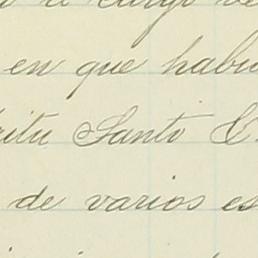 a cargo de
en que habi
ritu Santo C.
de varios es